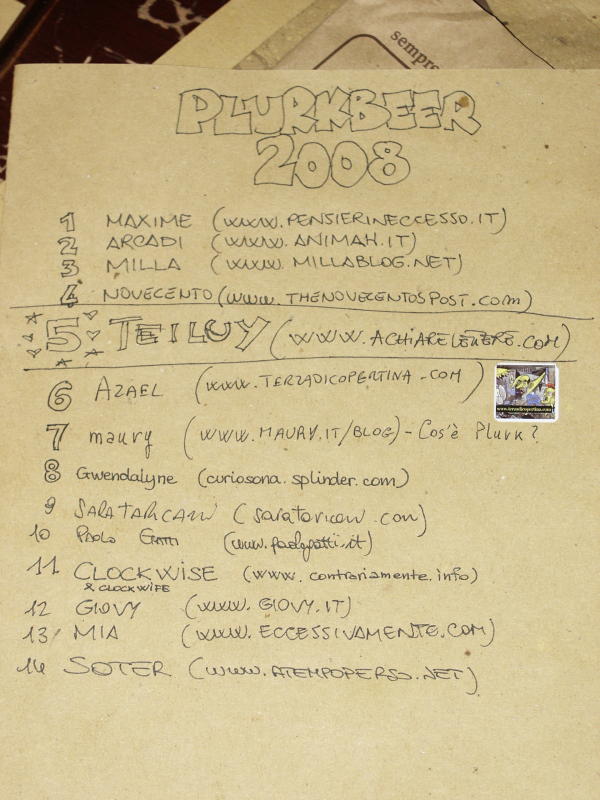 sempre
PLURKBEER
2008
1 MAXIME (WWW.PENSIERINECCESSO.IT)
2 ARCADI (WWW.ANIMAH.IT)
3 MILLA (WWW.MILLABLOG.NET)
4 NOVECENTO (WWW.THENOVECENTOSPOST.COM)
5 TEILUY (WWW.ACHIARELETTERE.COM)
6 AZAEL (WWW.TERZADICOPERTINA.COM)
www.terzadicopertina.com
7 maury (WWW.MAURY.IT/BLOG) - Cos'è Plurk?
8 Gwendalyne (curiosona.splinder.com)
9 SARATARICANI
10 PAOLO GATTI (www.paologatti.it)
11 CLOCKWISE (www.contrariamente.info)
& CLOCKWIFE
12 GIOVY (WWW.GIOVY.IT)
13 MIA (WWW.ECCESSIVAMENTE.COM)
14 SOTER (WWW.ATEMPOPERSO.NET)